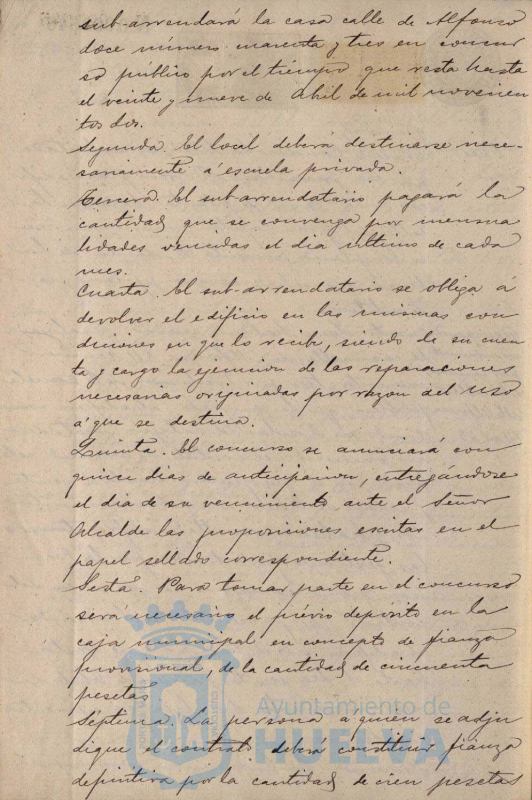 sub-arrendará la casa calle de Alfonso
doce número cuarenta y tres en concur
so público por el tiempo que resta hasta
el veinte y nueve de Abril de mil novecien
tos dos.
Segunda. El local deberá destinarse nece-
sariamente á escuela privada.
Tercera. El sub-arrendatario pagará la
cantidad que se convenga por mensua
lidades vencidas el dia ultimo de cada
mes.
Cuarta. El sub-arrendatario se obliga á
devolver el edificio en las mismas con
diciones en que lo recibe, siendo de su cuen
ta y cargo la ejecucion de las reparaciones
necesarias originadas por razon del uso
á que se destina.
Quinta. El concurso se anunciará con
quince dias de anticipacion, entregándose
el dia de su vencimiento ante el Señor
Alcalde las proposiciones escritas en el
papel sellado correspondiente.
Sesta. Para tomar parte en el concurso
será necesario el prévio depósito en la
caja municipal en concepto de fianza
provisional, de la cantidad de cincuenta
pesetas
Séptima. La persona á quien se adju
dique el contrato deberá constituir fianza
definitiva por la cantidad de cien pesetas
Ayuntamiento de
HUELVA